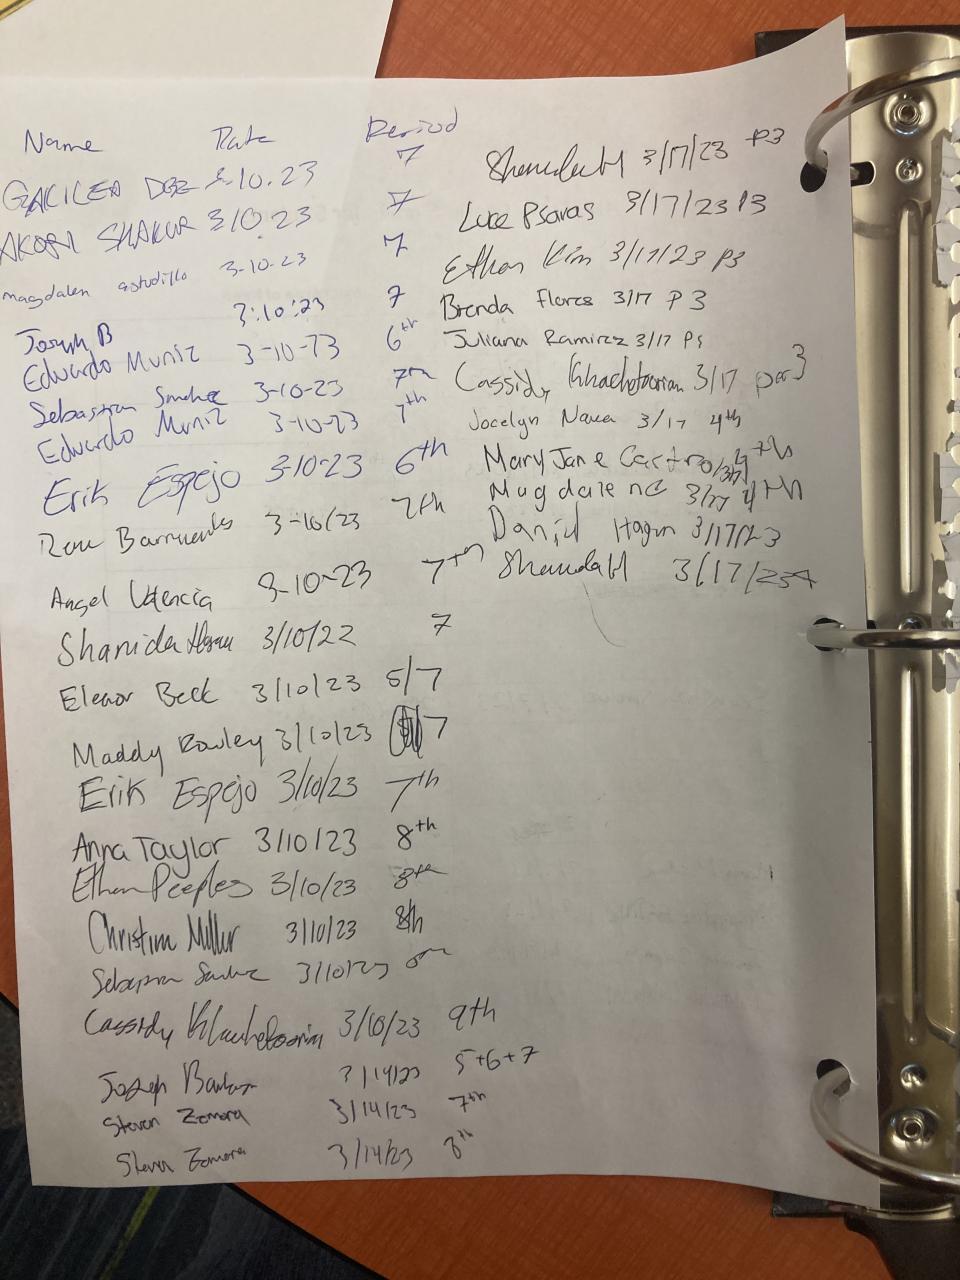 Name Date Period
7
GALILEA DGZ 3-10.23
AKORI SHAKUR 3/10.23 7
magdalen astudillo 3-10-23 7
Joseph B 3:10:23 7
Eduardo Muniz 3-10-23 6th
Sebastian Sanchez 3-10-23 7th
Eduardo Muniz 3-10-23 7th
Erik Espejo 3-10-23 6th
Barrientos 3-10/23 7th
Angel Valencia 3-10-23 7th
Shanida 3/10/22 7
Eleanor Beck 3/10/23 5/7
Maddy Rowley 3/10/23 7
Erik Espejo 3/10/23 7th
Anna Taylor 3/10/23 8th
Ethan Peeples 3/10/23 8th
Christian Miller 3/10/23 8th
Sebastian Sanchez 3/10/23
Cassidy Khachetoorian 3/10/23 9th
Joseph 3/14/23 5+6+7
Steven Zamora 3/14/23 7th
Steven Zamora 3/14/23 8th
3/17/23 P3
Luke Psaras 3/17/23 P3
Ethan Kim 3/17/23 P3
Brenda Flores 3/17 P 3
Juliana Ramirez 3/17
Cassidy Khachetoorian 3/17 per 3
Jocelyn Nava 3/17 4th
Mary Jane Castro 4th
Magdalena 3/17 4th
Daniel Hagun 3/17/23
3/17/23